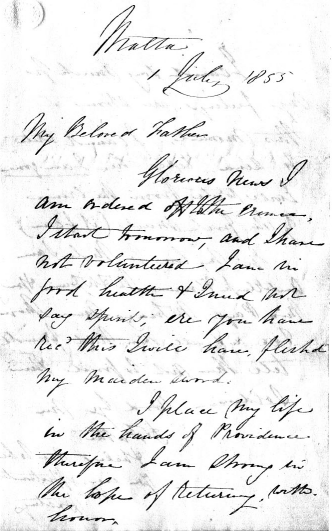 Malta
1 July 1855
My Beloved Father
Glorious news I
am ordered off to the Crimea,
I start tomorrow, and I have
not volunteered I am in
good health & I need not
say spirits, ere you have
recd this I will have fleshd
my maiden sword.
I place my life
in the hands of Providence
therefore I am strong in
the hope of returning, with
honor,